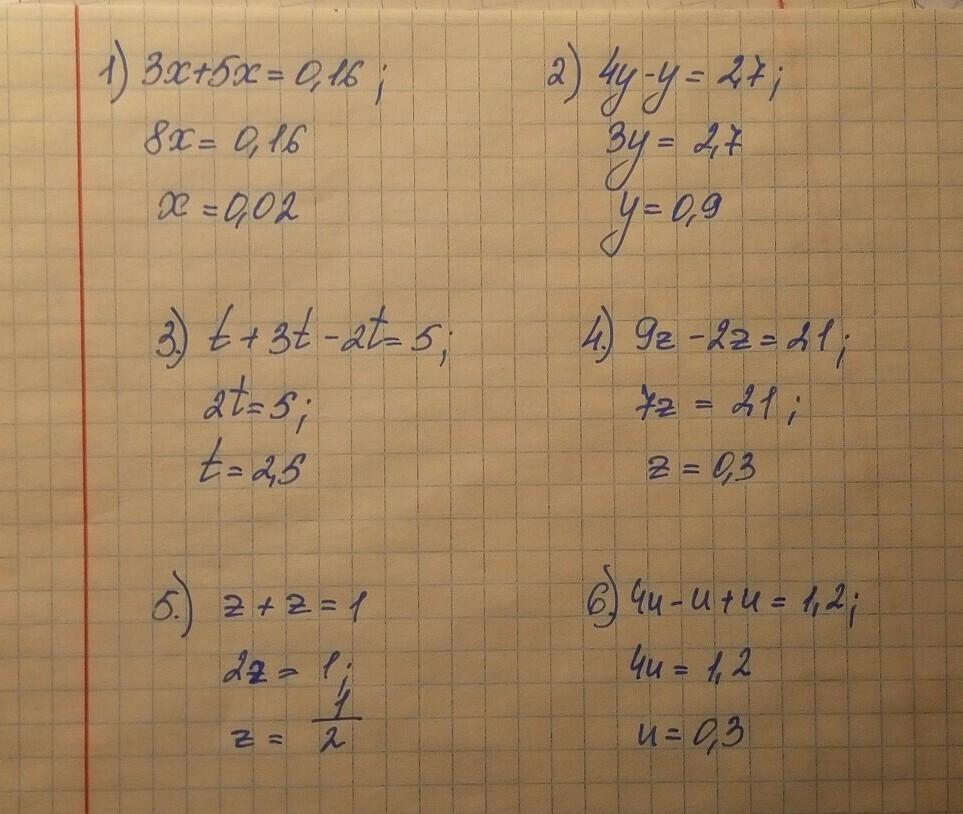 1) 3x+5x=0,16;
8x=0,16
x=0,02
2) 4y-y=2,7;
3y=2,7
y=0,9
3.) t+3t-2t=5;
2t=5;
t=2,5
4.) 9z-2z=21;
7z=21;
z=0,3
5.) z+z=1
2z=1;
z=1/2
6.) 4u-u+u=1,2;
4u=1,2
u=0,3